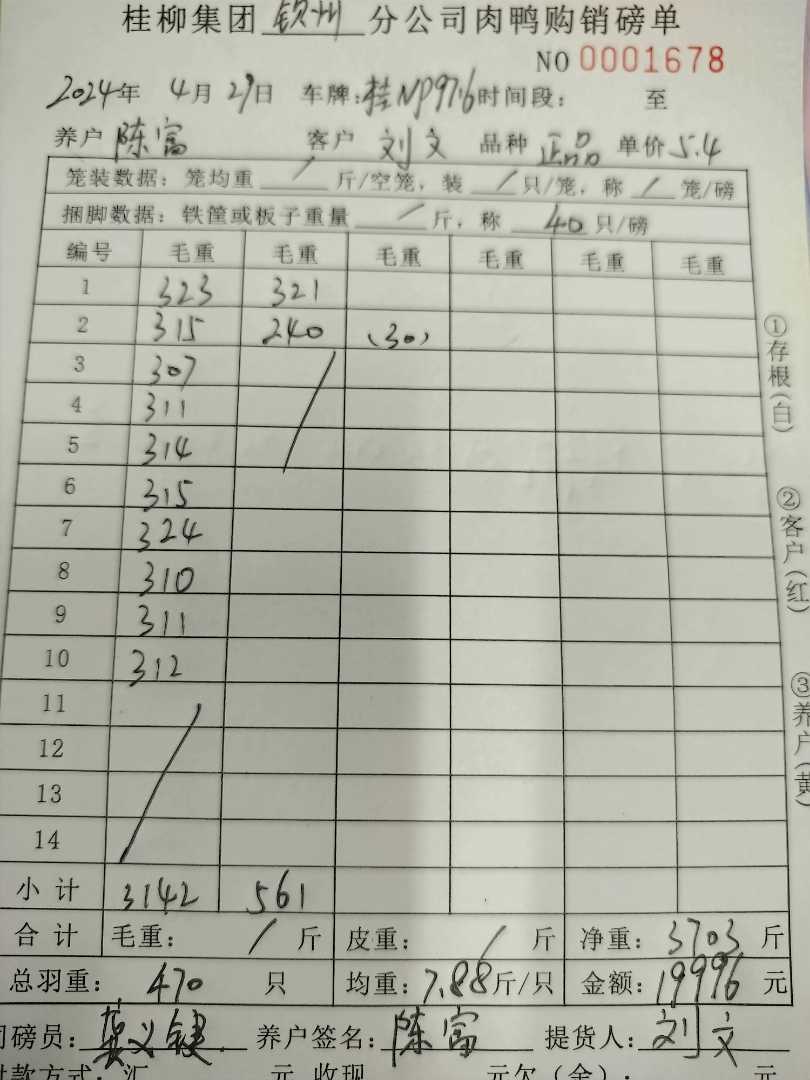 桂柳集团 钦州 分公司肉鸭购销磅单
NO 0001678
2024年 4月29日 车牌:桂NP9716 时间段: 至
养户 陈富 客户 刘文 品种 正品 单价 5.4
笼装数据: 笼均重 / 斤/空笼, 装 / 只/笼, 称 / 笼/磅
捆脚数据: 铁筐或板子重量 / 斤, 称 40 只/磅
编号 毛重 毛重 毛重 毛重 毛重 毛重
1 323 321
2 315 240 (30)
3 307
4 311
5 314
6 315
7 324
8 310
9 311
10 312
11
12
13
14
小计 3142 561
合计 毛重: / 斤 皮重: / 斤 净重: 3703 斤
总羽重: 470 只 均重: 7.88 斤/只 金额: 19996 元
司磅员: 养户签名: 陈富 提货人: 刘文
付款方式: 汇 元 收现 元欠(余): 元
①存根(白)
②客户(红)
③养户(黄)